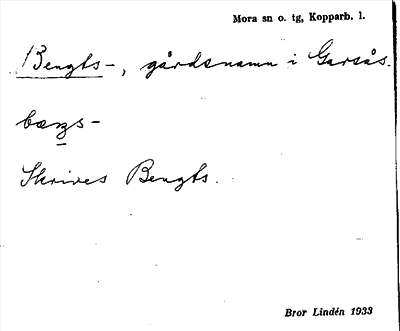 Mora sn o. tg, Kopparb. l.
Bengts-, gårdsnamn i Garsås.
bæŋs-
Skrives Bengts.
Bror Lindén 1933